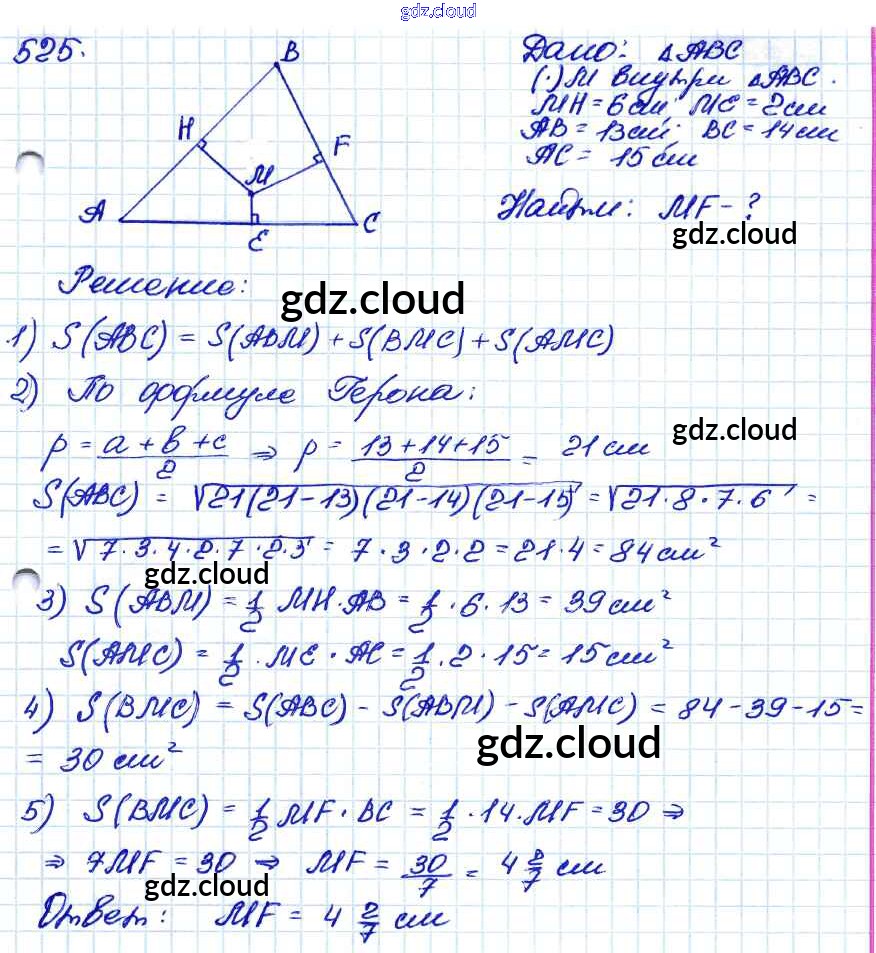 gdz.cloud
525.
B
H
F
M
A
E
C
Дано: △ABC
(·)M внутри △ABC.
MH = 6см; ME = 2см
AB = 13см; BC = 14см
AC = 15см
Найти: MF - ?
gdz.cloud
Решение:
gdz.cloud
1) S(ABC) = S(ABM) + S(BMC) + S(AMC)
2) По формуле Герона:
gdz.cloud
p = (a + b + c)/2 ⇒ p = (13 + 14 + 15)/2 = 21 см
S(ABC) = √21(21-13)(21-14)(21-15) = √21·8·7·6 =
= √7·3·4·2·7·2·3 = 7·3·2·2 = 21·4 = 84 см²
gdz.cloud
3) S(ABM) = 1/2 MH·AB = 1/2·6·13 = 39 см²
S(AMC) = 1/2·ME·AC = 1/2·2·15 = 15 см²
4) S(BMC) = S(ABC) - S(ABM) - S(AMC) = 84 - 39 - 15 =
= 30 см²
gdz.cloud
5) S(BMC) = 1/2 MF·BC = 1/2·14·MF = 30 ⇒
⇒ 7MF = 30 ⇒ MF = 30/7 = 4 2/7 см
gdz.cloud
Ответ: MF = 4 2/7 см